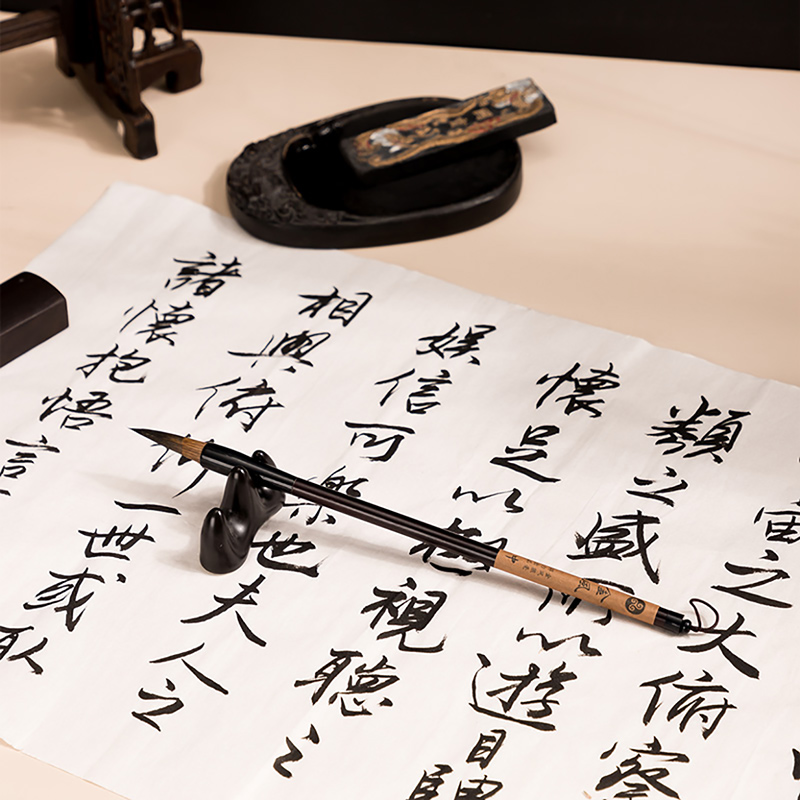 宙之大俯察
類之盛所以遊目騁
懷足以極視聽之
娛信可樂也夫人之
相與俯仰一世或取
諸懷抱悟言